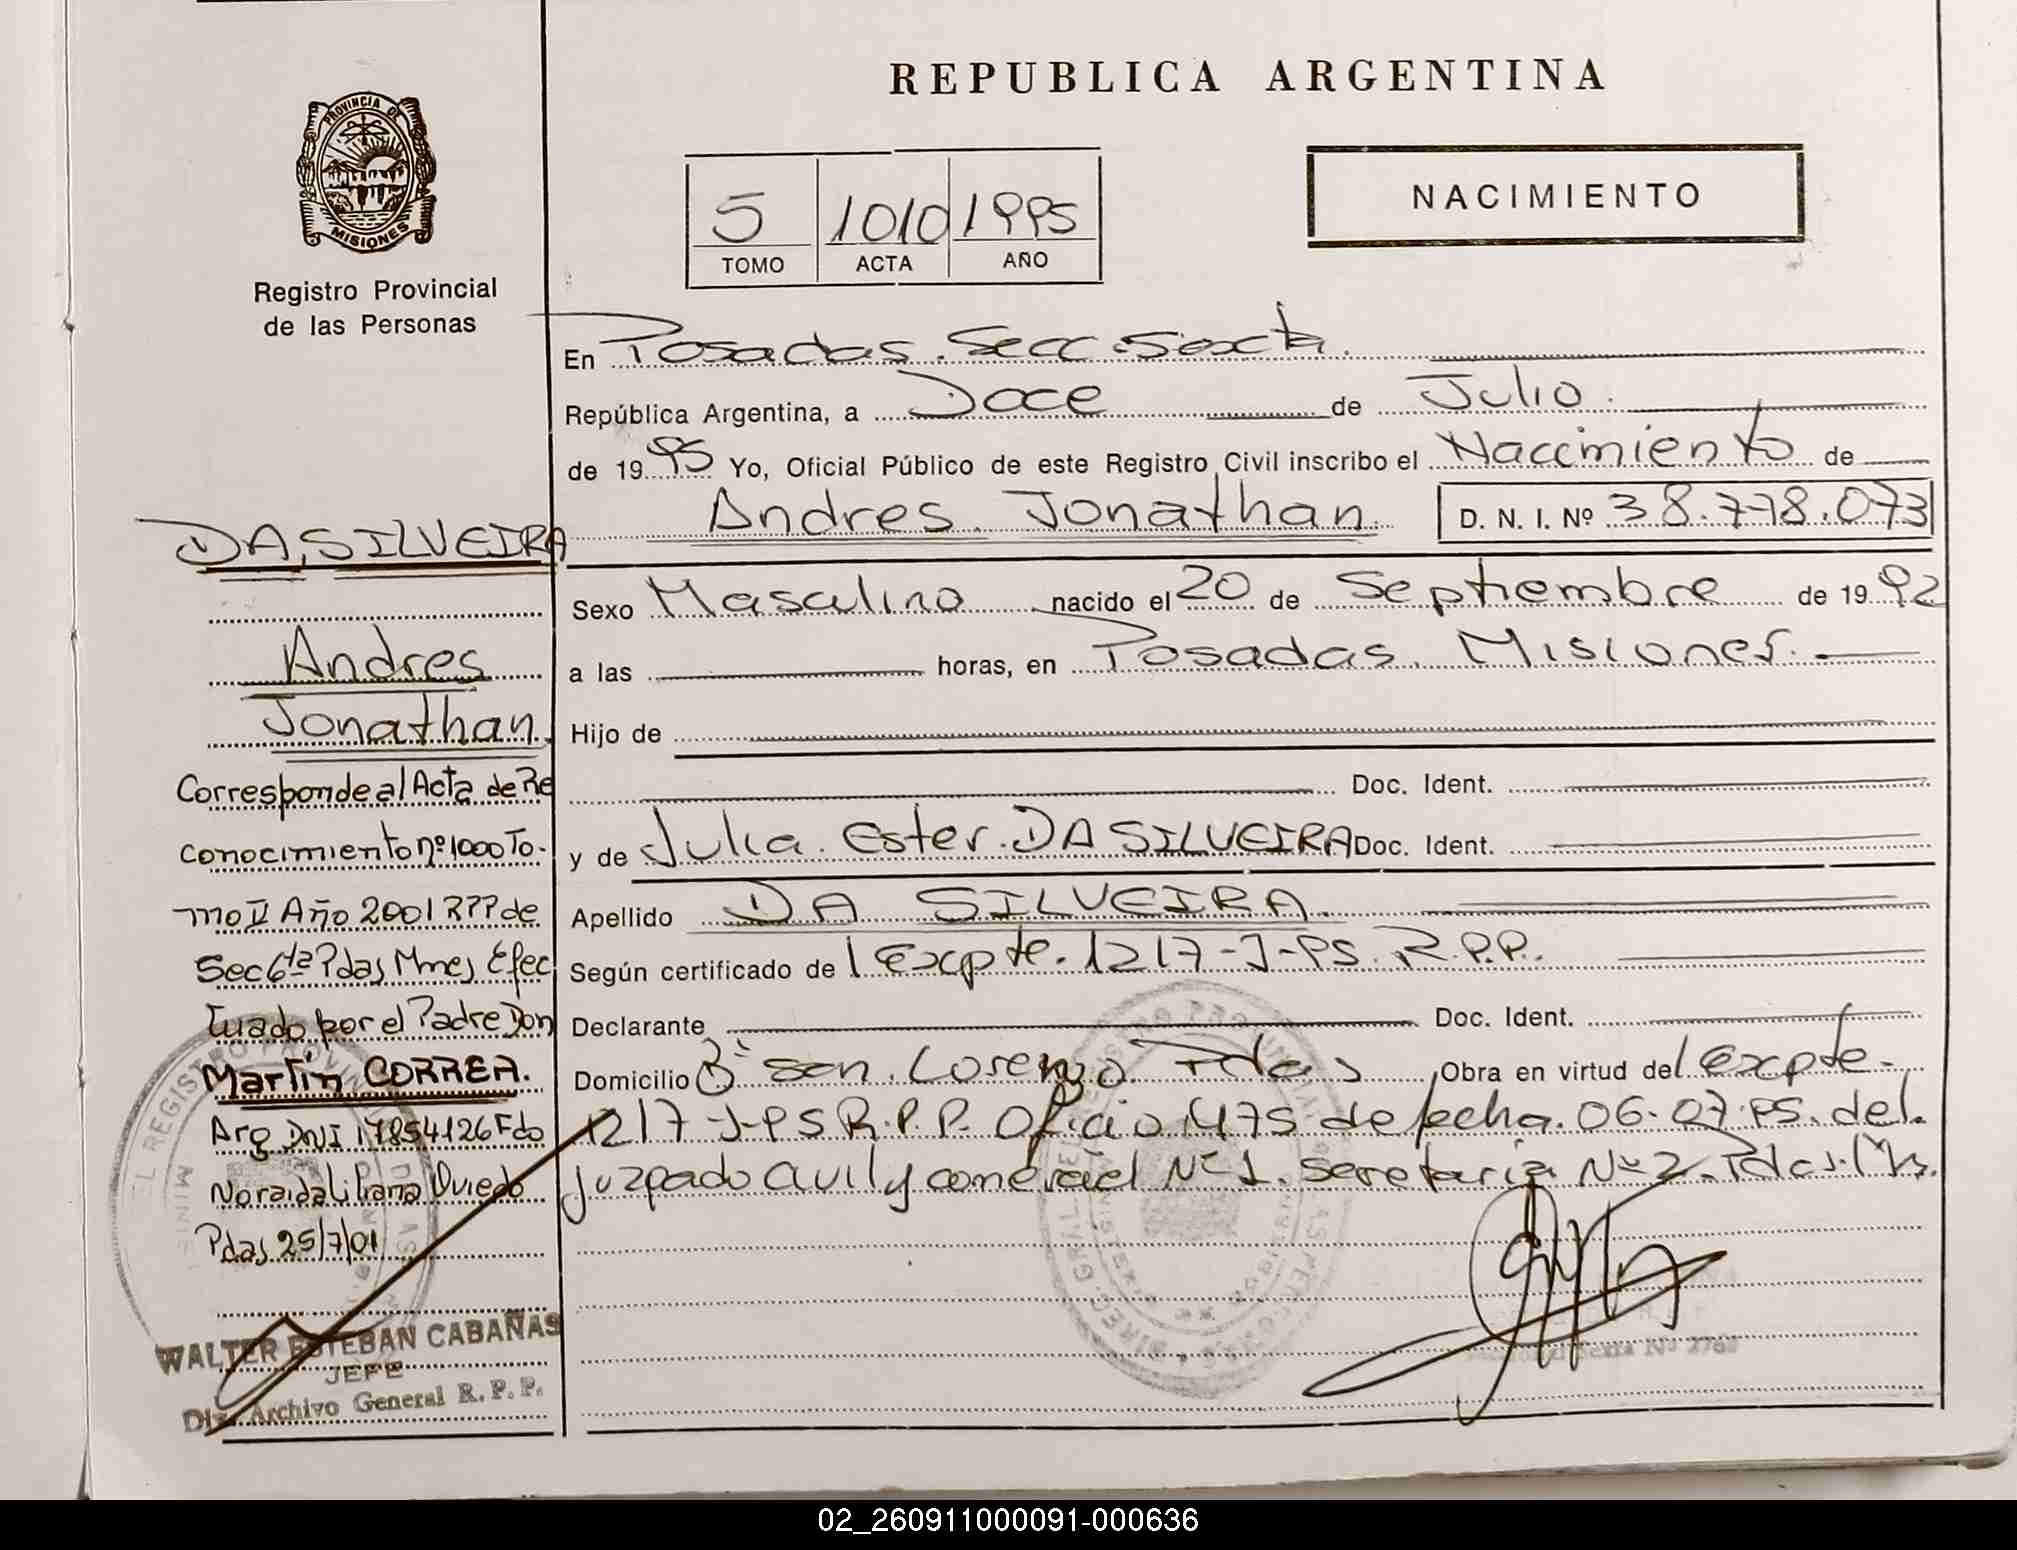 REPUBLICA ARGENTINA
PROVINCIA DE
MISIONES
Registro Provincial
de las Personas
NACIMIENTO
5 1010 1995
TOMO ACTA AÑO
En Posadas. Secc. Sexta.
República Argentina, a Doce de Julio.
de 1995 Yo, Oficial Público de este Registro Civil inscribo el Naccimiento de
Andres. Jonathan. D. N. I. Nº 38.778.073
Sexo Masculino nacido el 20 de Septiembre de 1992
a las horas, en Posadas. Misiones.
Hijo de
Doc. Ident.
y de Julia. Ester. DA SILVEIRA Doc. Ident.
Apellido DA SILVEIRA.
Según certificado de Expte. 1217-J-95. R.P.P.
Declarante Doc. Ident.
Domicilio Bº San. Lorenzo. Pdas Obra en virtud del Expte.
1217-J-95 R.P.P. Oficio 1475 de fecha. 06.07.95. del.
juzgado Civil y comercial Nº 1. Secretaria Nº 2. Pdas.
DA SILVEIRA
Andres
Jonathan.
Corresponde al Acta de Re
conocimiento nº 1000 To-
mo II Año 2001 RPP de
Sec 6ta Pdas Mnes Efec
tuado por el Padre Don
Martín CORREA.
Arg DNI 17854126 Fdo
Noraida Liliana Oviedo
Pdas 25/7/01
WALTER ESTEBAN CABAÑAS
JEFE
Div. Archivo General R. P. P.
02_260911000091-000636